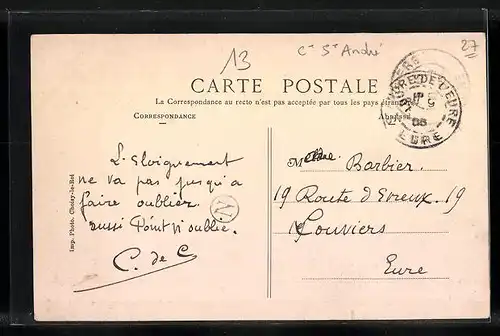 13
Cⁿ Sᵗ André
27
CARTE POSTALE
La Correspondance au recto n'est pas acceptée par tous les pays étrangers
CORRESPONDANCE
L'Éloignement
ne va pas jusqu'a
faire oublier.
aussi Point n'oublie.
C. de C
N
Imp. Photo. Choisy-le-Roi
EURE
Barbier.
19 Route d'Evreux. 19
Louviers
Eure